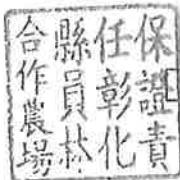 保證責
任彰化
縣員林
合作農場